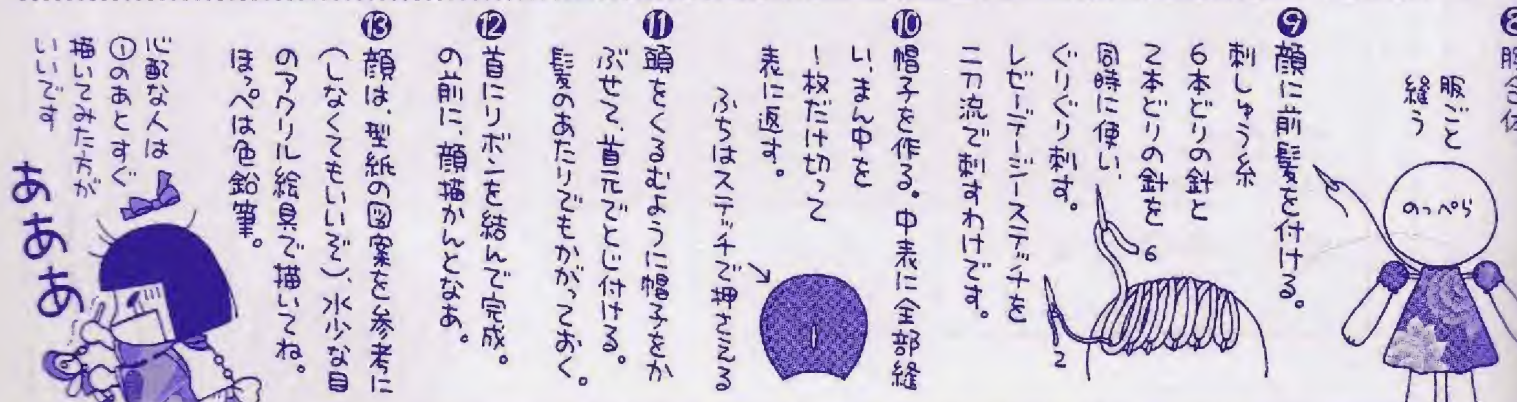 ❽
服ごと
縫う
のっぺら
❾顔に前髪を付ける。
刺しゅう糸
6本どりの針と
2本どりの針を
同時に使い、
ぐりぐり刺す。
レゼーデージーステッチを
二刀流で刺すわけです。
6
2
❿帽子を作る。中表に全部縫
い、まん中を
1枚だけ切って
表に返す。
ふちはステッチで押さえる
⓫頭をくるむように帽子をか
ぶせて、首元でとじ付ける。
髪のあたりでもかがっておく。
⓬首にリボンを結んで完成。
の前に、顔描かんとなあ。
⓭顔は、型紙の図案を参考に
(しなくてもいいぞ)、水少な目
のアクリル絵具で描いてね。
ほっぺは色鉛筆。
心配な人は
①のあとすぐ
描いてみた方が
いいです
あああ